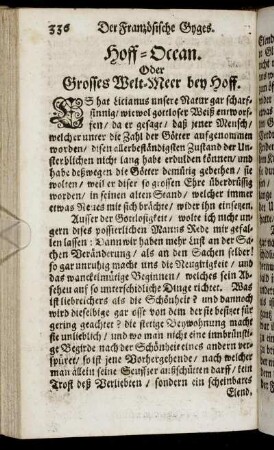 336 Der Französische Gyges.
Hoff-Ocean.
Oder
Grosses Welt-Meer bey Hoff.
ES hat Licianus unsere Natur gar scharf-
sinnig / wiewol gottloser Weiß entworf-
fen / da er gesagt / daß jener Mensch /
welcher unter die Zahl der Götter aufgenommen
worden / disen allerbeständigsten Zustand der Un-
sterblichen nicht lang habe erdulden können / und
habe deßwegen die Götter demütig gebethen / sie
wolten / weil er diser so grossen Ehre überdrüssig
worden / in seinen alten Stand / welcher immer
etwas Neues mit sich brächte / wider ihn einsezen.
Ausser der Gottlosigkeit / wolte ich nicht un-
gern dises possierlichen Manns Rede mir gefal-
len lassen : Dann wir haben mehr Lust an der Sa-
chen Veränderung / als an den Sachen selber :
so gar unruhig macht uns die Neugirigkeit / und
das wanckelmütige Beginnen / welches sein Ab-
sehen auf so unterschidliche Dinge richtet. Was
ist liebreichers als die Schönheit ? und dannoch
wird dieselbige gar offt von dem der sie besizet für
gering geachtet ? die stetige Beywohnung macht
sie unlieblich / und wo man nicht eine innbrünsti-
ge Begirde nach der Schönheit eines andern ver-
spüret / so ist jene Vorhergehende / nach welcher
man allein seine Seufzer anschütten darff / kein
Trost deß Verliebten / sondern ein scheinbares
Elend.